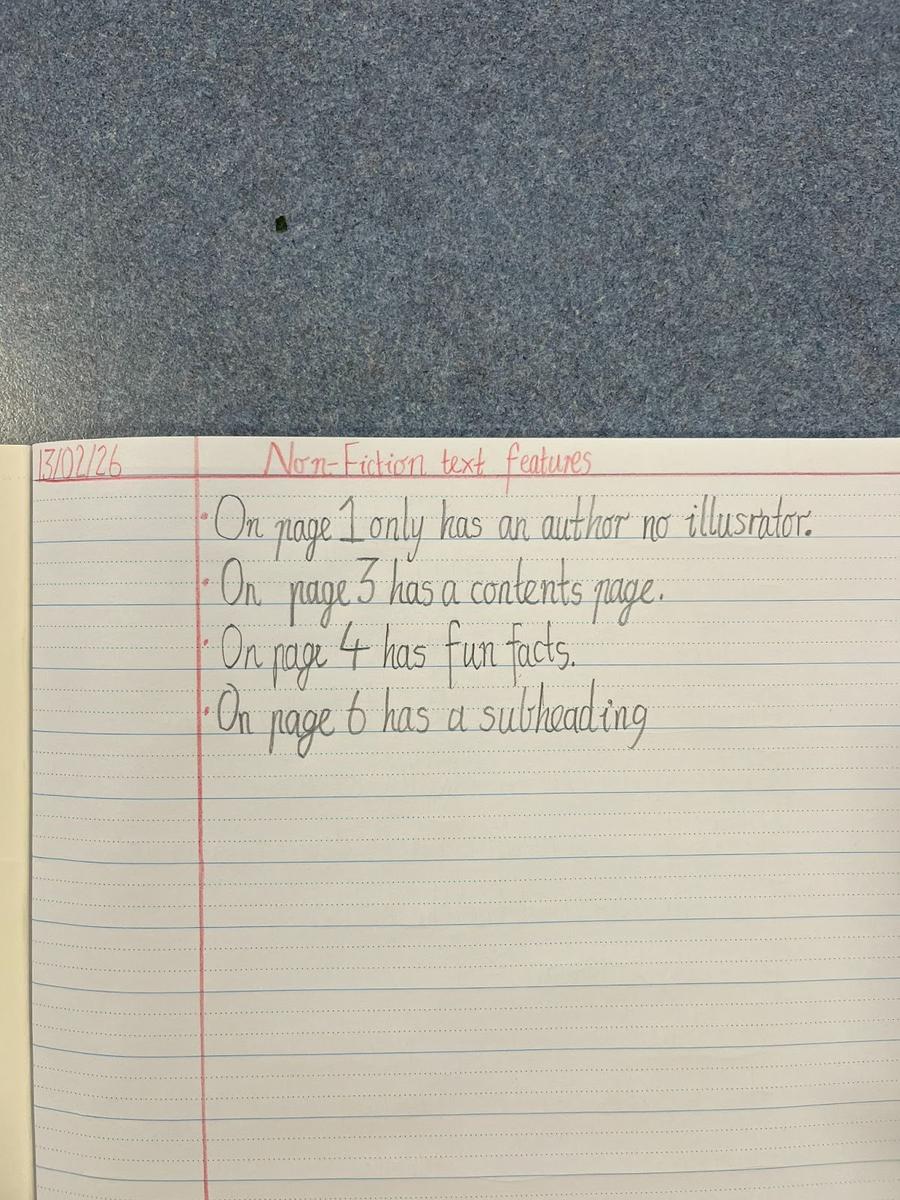 13/02/26 Non-Fiction text features
• On page 1 only has an author no illusrator.
• On page 3 has a contents page.
• On page 4 has fun facts.
• On page 6 has a subheading